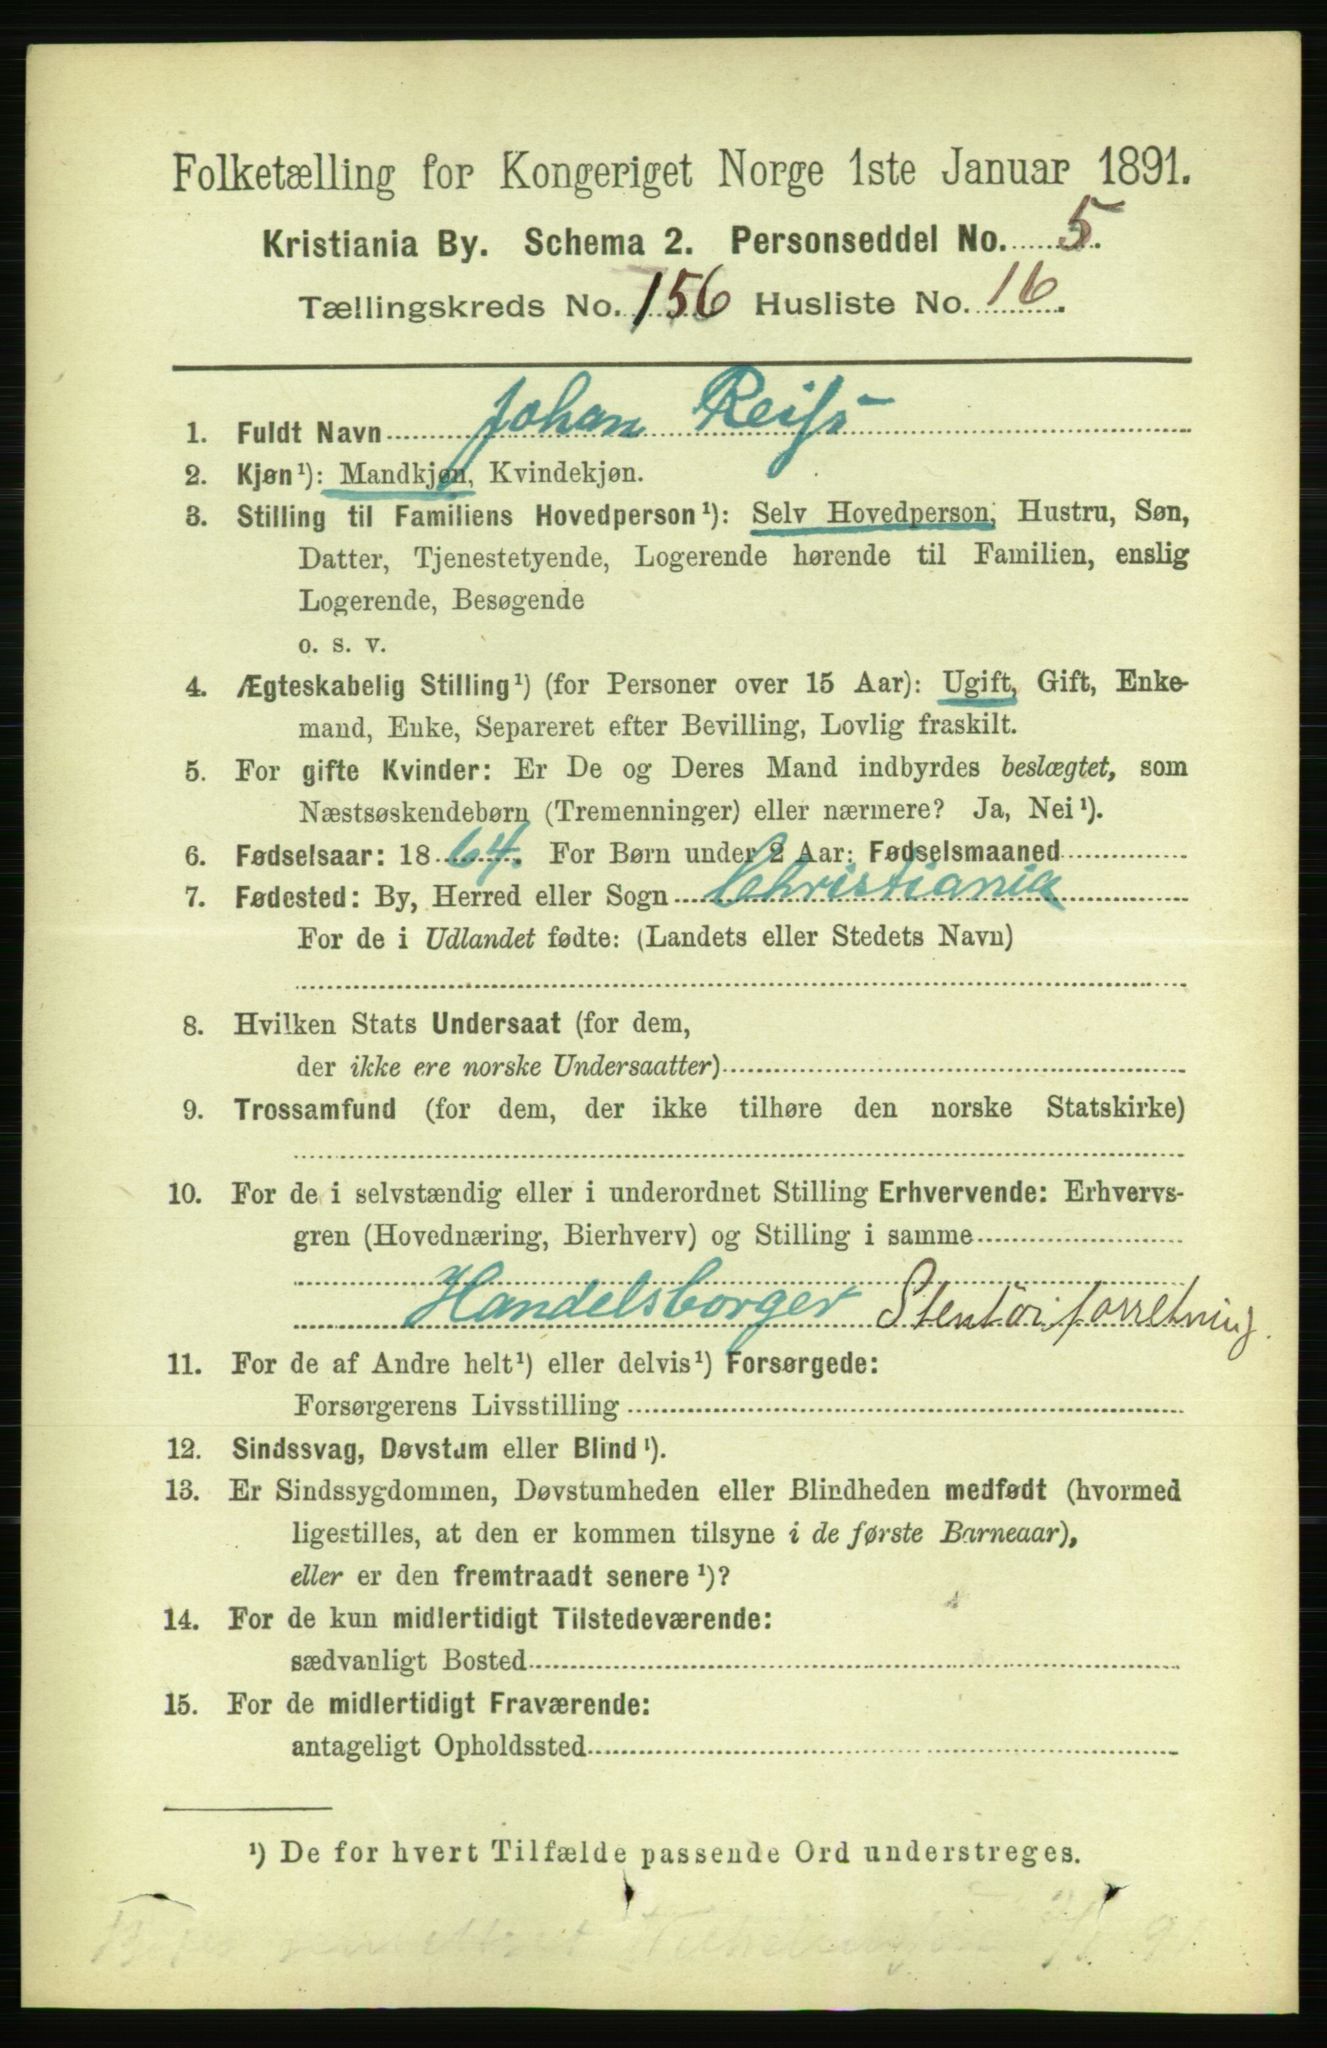 Folketælling for Kongeriget Norge 1ste Januar 1891.
Kristiania By. Schema 2. Personseddel No. 5.
Tællingskreds No. 156 Husliste No. 16.
1. Fuldt Navn Johan Reiss
2. Kjøn¹): Mandkjøn, Kvindekjøn.
3. Stilling til Familiens Hovedperson¹): Selv Hovedperson, Hustru, Søn,
Datter, Tjenestetyende, Logerende hørende til Familien, enslig
Logerende, Besøgende
o. s. v.
4. Ægteskabelig Stilling¹) (for Personer over 15 Aar): Ugift, Gift, Enke-
mand, Enke, Separeret efter Bevilling, Lovlig fraskilt.
5. For gifte Kvinder: Er De og Deres Mand indbyrdes beslægtet, som
Næstsøskendebørn (Tremenninger) eller nærmere? Ja, Nei¹).
6. Fødselsaar: 1864. For Børn under 2 Aar: Fødselsmaaned
7. Fødested: By, Herred eller Sogn Christiania
For de i Udlandet fødte: (Landets eller Stedets Navn)
8. Hvilken Stats Undersaat (for dem,
der ikke ere norske Undersaatter)
9. Trossamfund (for dem, der ikke tilhøre den norske Statskirke)
10. For de i selvstændig eller i underordnet Stilling Erhvervende: Erhvervs-
gren (Hovednæring, Bierhverv) og Stilling i samme
Handelsborger Stentøiforretning.
11. For de af Andre helt¹) eller delvis¹) Forsørgede:
Forsørgerens Livsstilling
12. Sindssvag, Døvstum eller Blind¹).
13. Er Sindssygdommen, Døvstumheden eller Blindheden medfødt (hvormed
ligestilles, at den er kommen tilsyne i de første Barneaar),
eller er den fremtraadt senere¹)?
14. For de kun midlertidigt Tilstedeværende:
sædvanligt Bosted
15. For de midlertidigt Fraværende:
antageligt Opholdssted
¹) De for hvert Tilfælde passende Ord understreges.